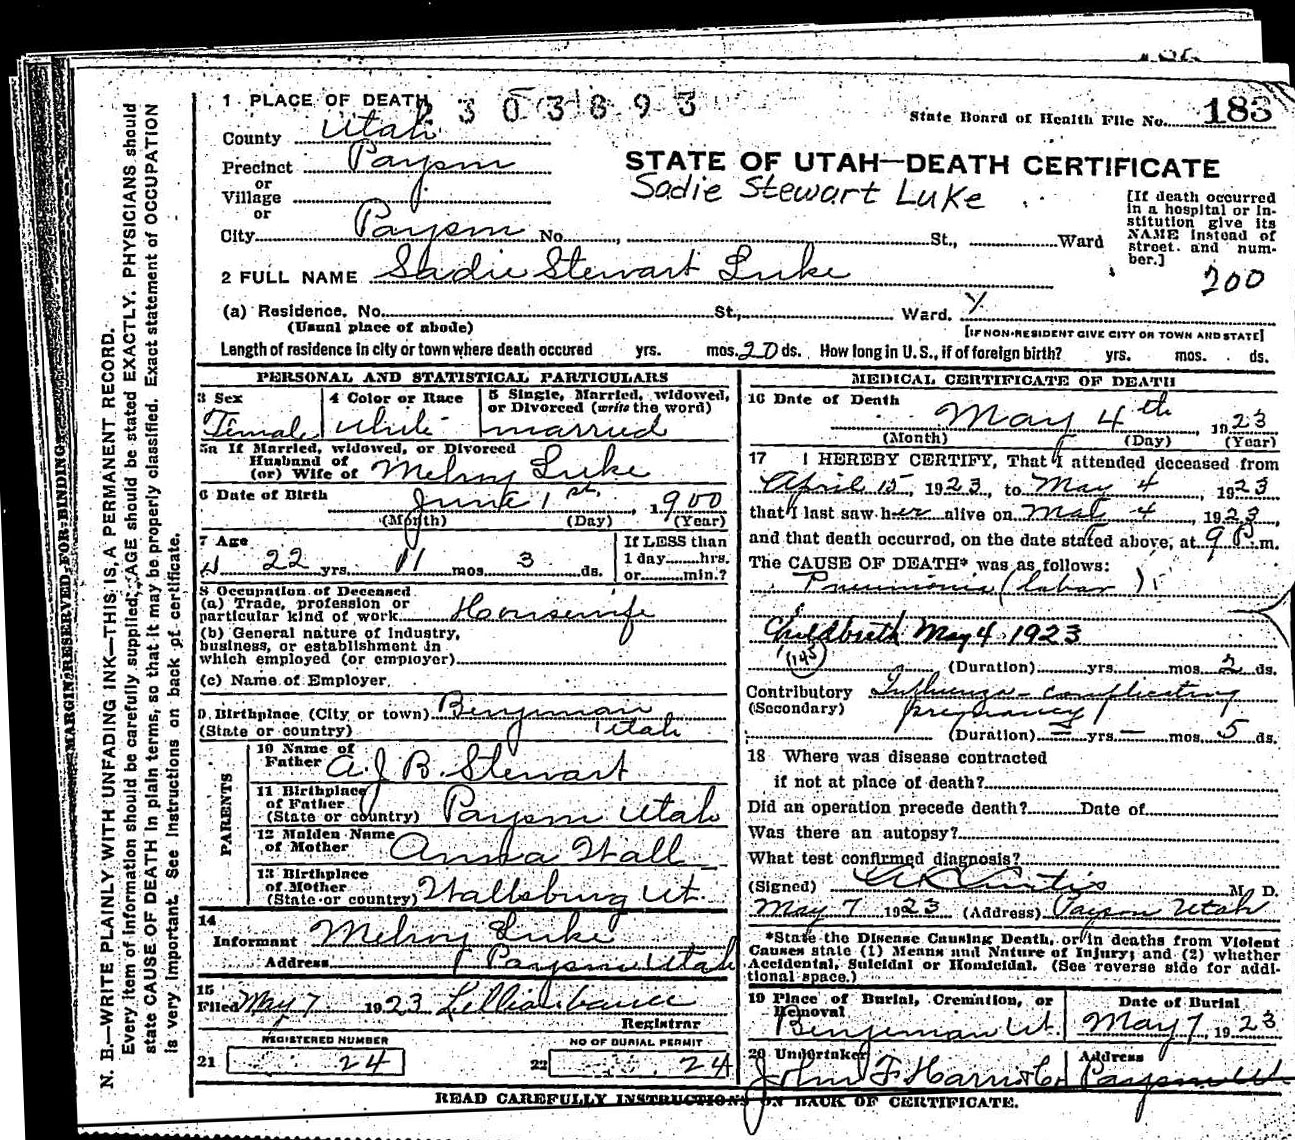 1 PLACE OF DEATH
2 3 0 3 8 9 3
State Board of Health File No. 183
County Utah
Precinct Payson
or
Village
or
City Payson No. , St., Ward
STATE OF UTAH—DEATH CERTIFICATE
Sadie Stewart Luke
[If death occurred
in a hospital or in-
stitution give its
NAME instead of
street. and num-
ber.]
200
2 FULL NAME Sadie Stewart Luke
(a) Residence. No. St., Ward.
(Usual place of abode)
[IF NON-RESIDENT GIVE CITY OR TOWN AND STATE]
Length of residence in city or town where death occured yrs. mos. 20 ds. How long in U. S., if of foreign birth? yrs. mos. ds.
PERSONAL AND STATISTICAL PARTICULARS
3 Sex
Female
4 Color or Race
White
5 Single, Married, widowed,
or Divorced (write the word)
married
5a If Married, widowed, or Divorced
Husband of
(or) Wife of Melroy Luke
6 Date of Birth
June 1st, 1900
(Month) (Day) (Year)
7 Age
22 yrs. 11 mos. 3 ds.
If LESS than
1 day hrs.
or min.?
8 Occupation of Deceased
(a) Trade, profession or
particular kind of work Housewife
(b) General nature of Industry,
business, or establishment in
which employed (or employer)
(c) Name of Employer
9 Birthplace (City or town) Benjeman
(State or country) Utah
PARENTS
10 Name of
Father A. J. B. Stewart
11 Birthplace
of Father
(State or country) Payson Utah
12 Maiden Name
of Mother Anna Wall
13 Birthplace
of Mother
(State or country) Wallsburg Ut.
14
Informant Melroy Luke
Address Payson Utah
15
Filed May 7 1923
Registrar
REGISTERED NUMBER
21 24
NO OF BURIAL PERMIT
22 24
MEDICAL CERTIFICATE OF DEATH
16 Date of Death
May 4th, 1923
(Month) (Day) (Year)
17 I HEREBY CERTIFY, That I attended deceased from
April 15, 1923, to May 4, 1923
that I last saw her alive on May 4, 1923,
and that death occurred, on the date stated above, at 9 P.m.
The CAUSE OF DEATH* was as follows:
Pneumonia (lobar)
Childbirth May 4 1923
(145)
(Duration) yrs. mos. 2 ds.
Contributory Influenza - complicating
(Secondary) pregnancy
(Duration) — yrs. — mos. 5 ds.
18 Where was disease contracted
if not at place of death?
Did an operation precede death? Date of
Was there an autopsy?
What test confirmed diagnosis?
(Signed) Curtis M. D.
May 7 1923 (Address) Payson Utah
*State the Disease Causing Death, or in deaths from Violent
Causes state (1) Means and Nature of Injury; and (2) whether
Accidental, Suicidal or Homicidal. (See reverse side for addi-
tional space.)
19 Place of Burial, Cremation, or
Removal
Benjeman Ut.
Date of Burial
May 7, 1923
20 Undertaker
John F. Harris Co
Address
Payson Ut
READ CAREFULLY INSTRUCTIONS ON BACK OF CERTIFICATE.
MARGIN RESERVED FOR BINDING
N. B.—WRITE PLAINLY WITH UNFADING INK—THIS IS A PERMANENT RECORD.
Every item of Information should be carefully supplied; AGE should be stated EXACTLY. PHYSICIANS should
state CAUSE OF DEATH in plain terms, so that it may be properly classified. Exact statement of OCCUPATION
is very important. See instructions on back of certificate.